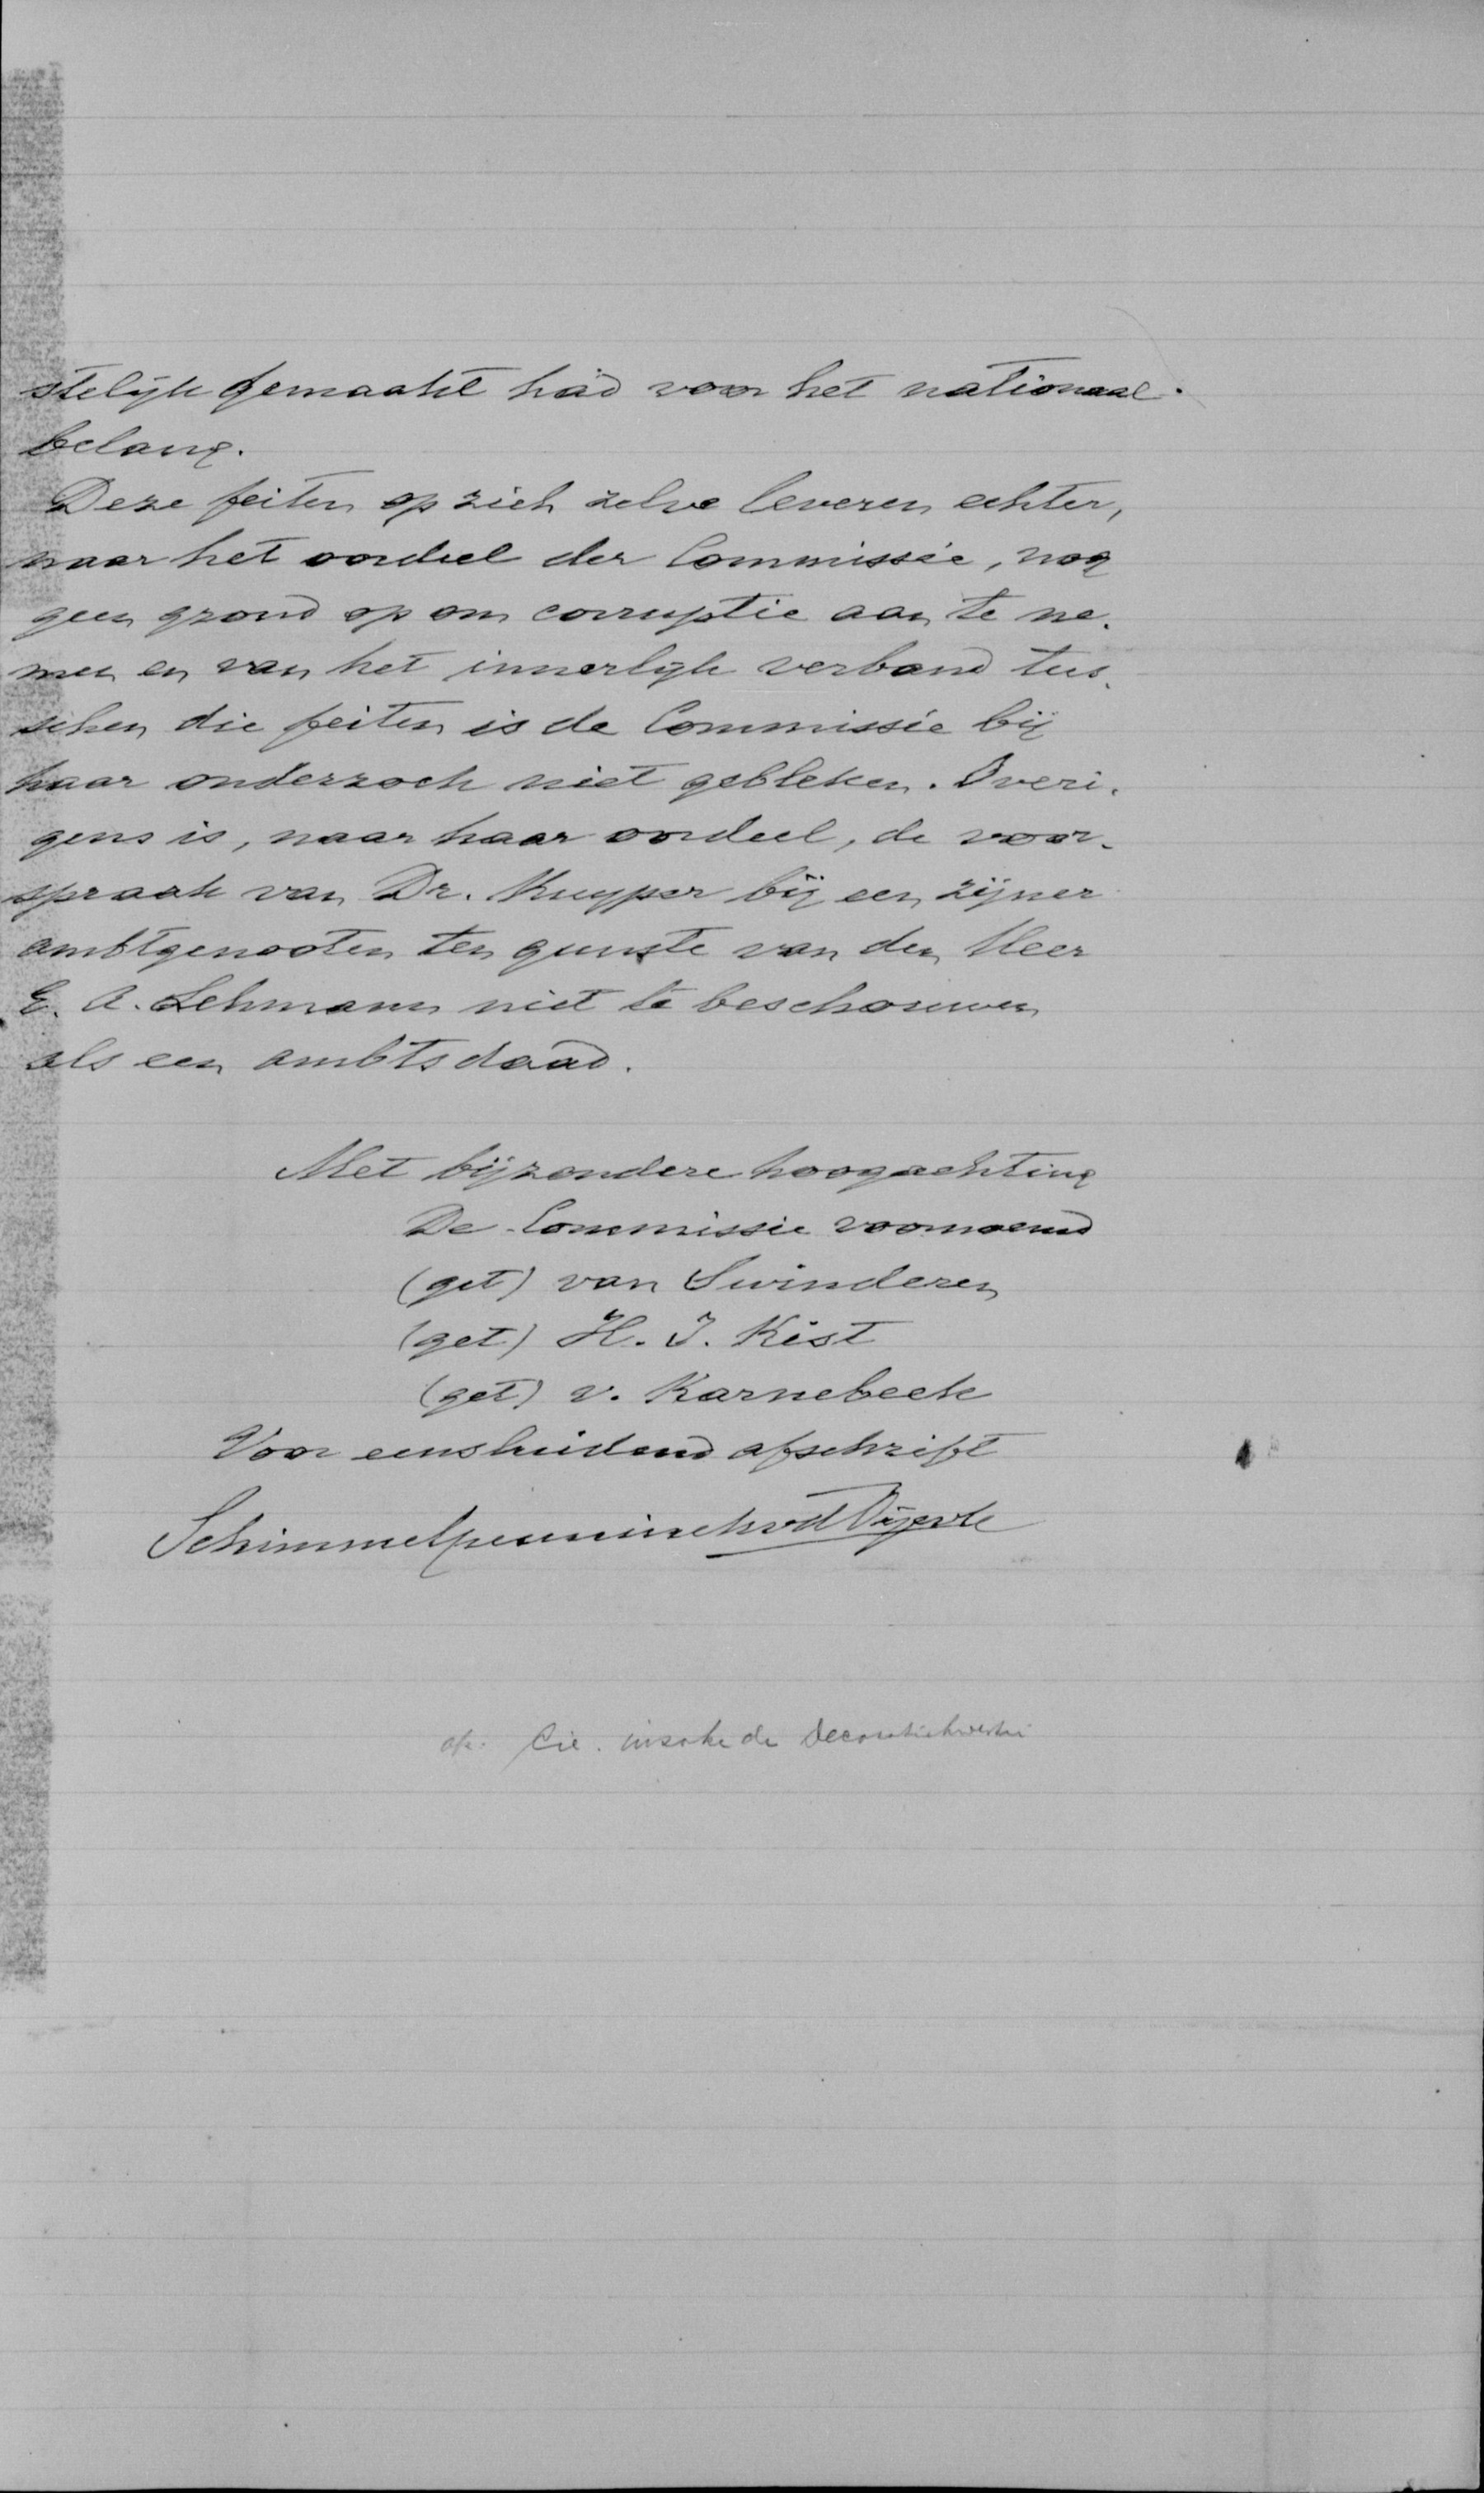 stelijk gemaakt had voor het nationaal
belang.
Deze feiten op zich zelve leveren echter,
naar het oordeel der Commissie, nog
geen grond op om corruptie aan te ne-
men en van het innerlijk verband tus-
schen die feiten is de Commissie bij
haar onderzoek niet gebleken. Overi-
gens is, naar haar oordeel, de voor-
spraak van Dr. Kuyper bij een zijner
ambtgenooten ten gunste van den Heer
E. A. Lehmann niet te beschouwen
als een ambtsdaad.
Met bijzondere hoogachting
De Commissie voornoemd
(get) van Swinderen
(get) H. J. Kist
(get) v. Karnebeek
Voor eensluidend afschrift
Schimmelpenninck vd Oijevde
Cie. inzake de decoratiekwestie